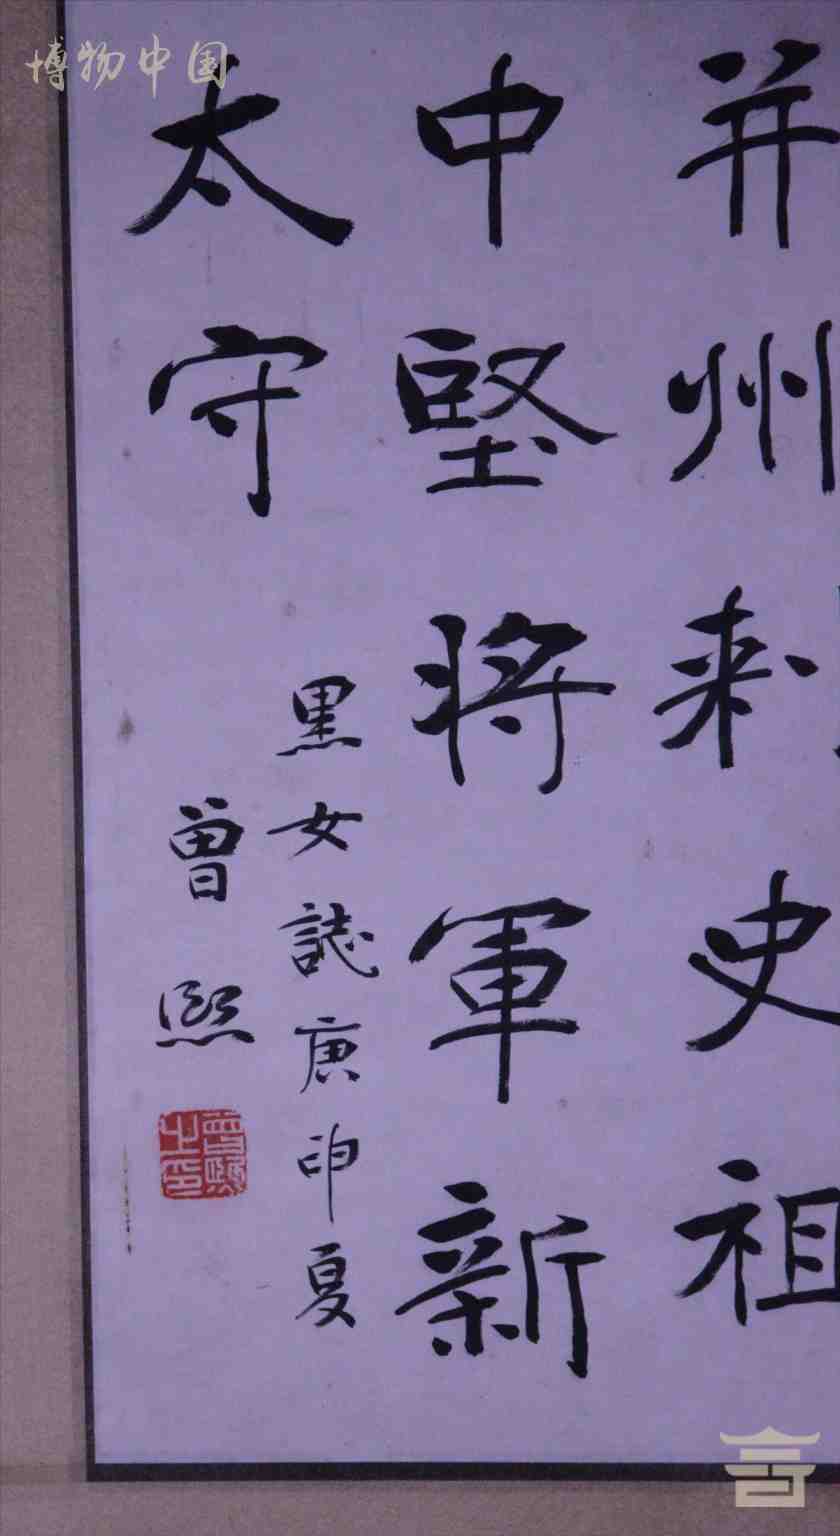 博物中国
并州刺史祖
中堅将軍新
太守
黑女誌庚申夏
曾熙
曾熙之印